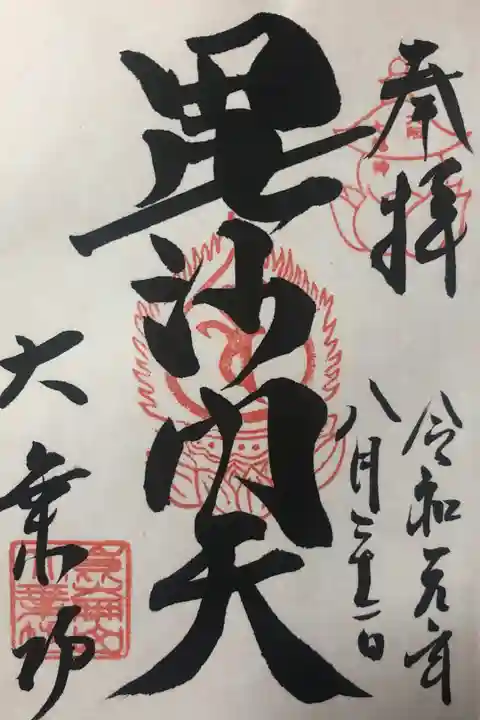 奉拝
令和元年
八月三十一日
毘沙門天
大乗坊